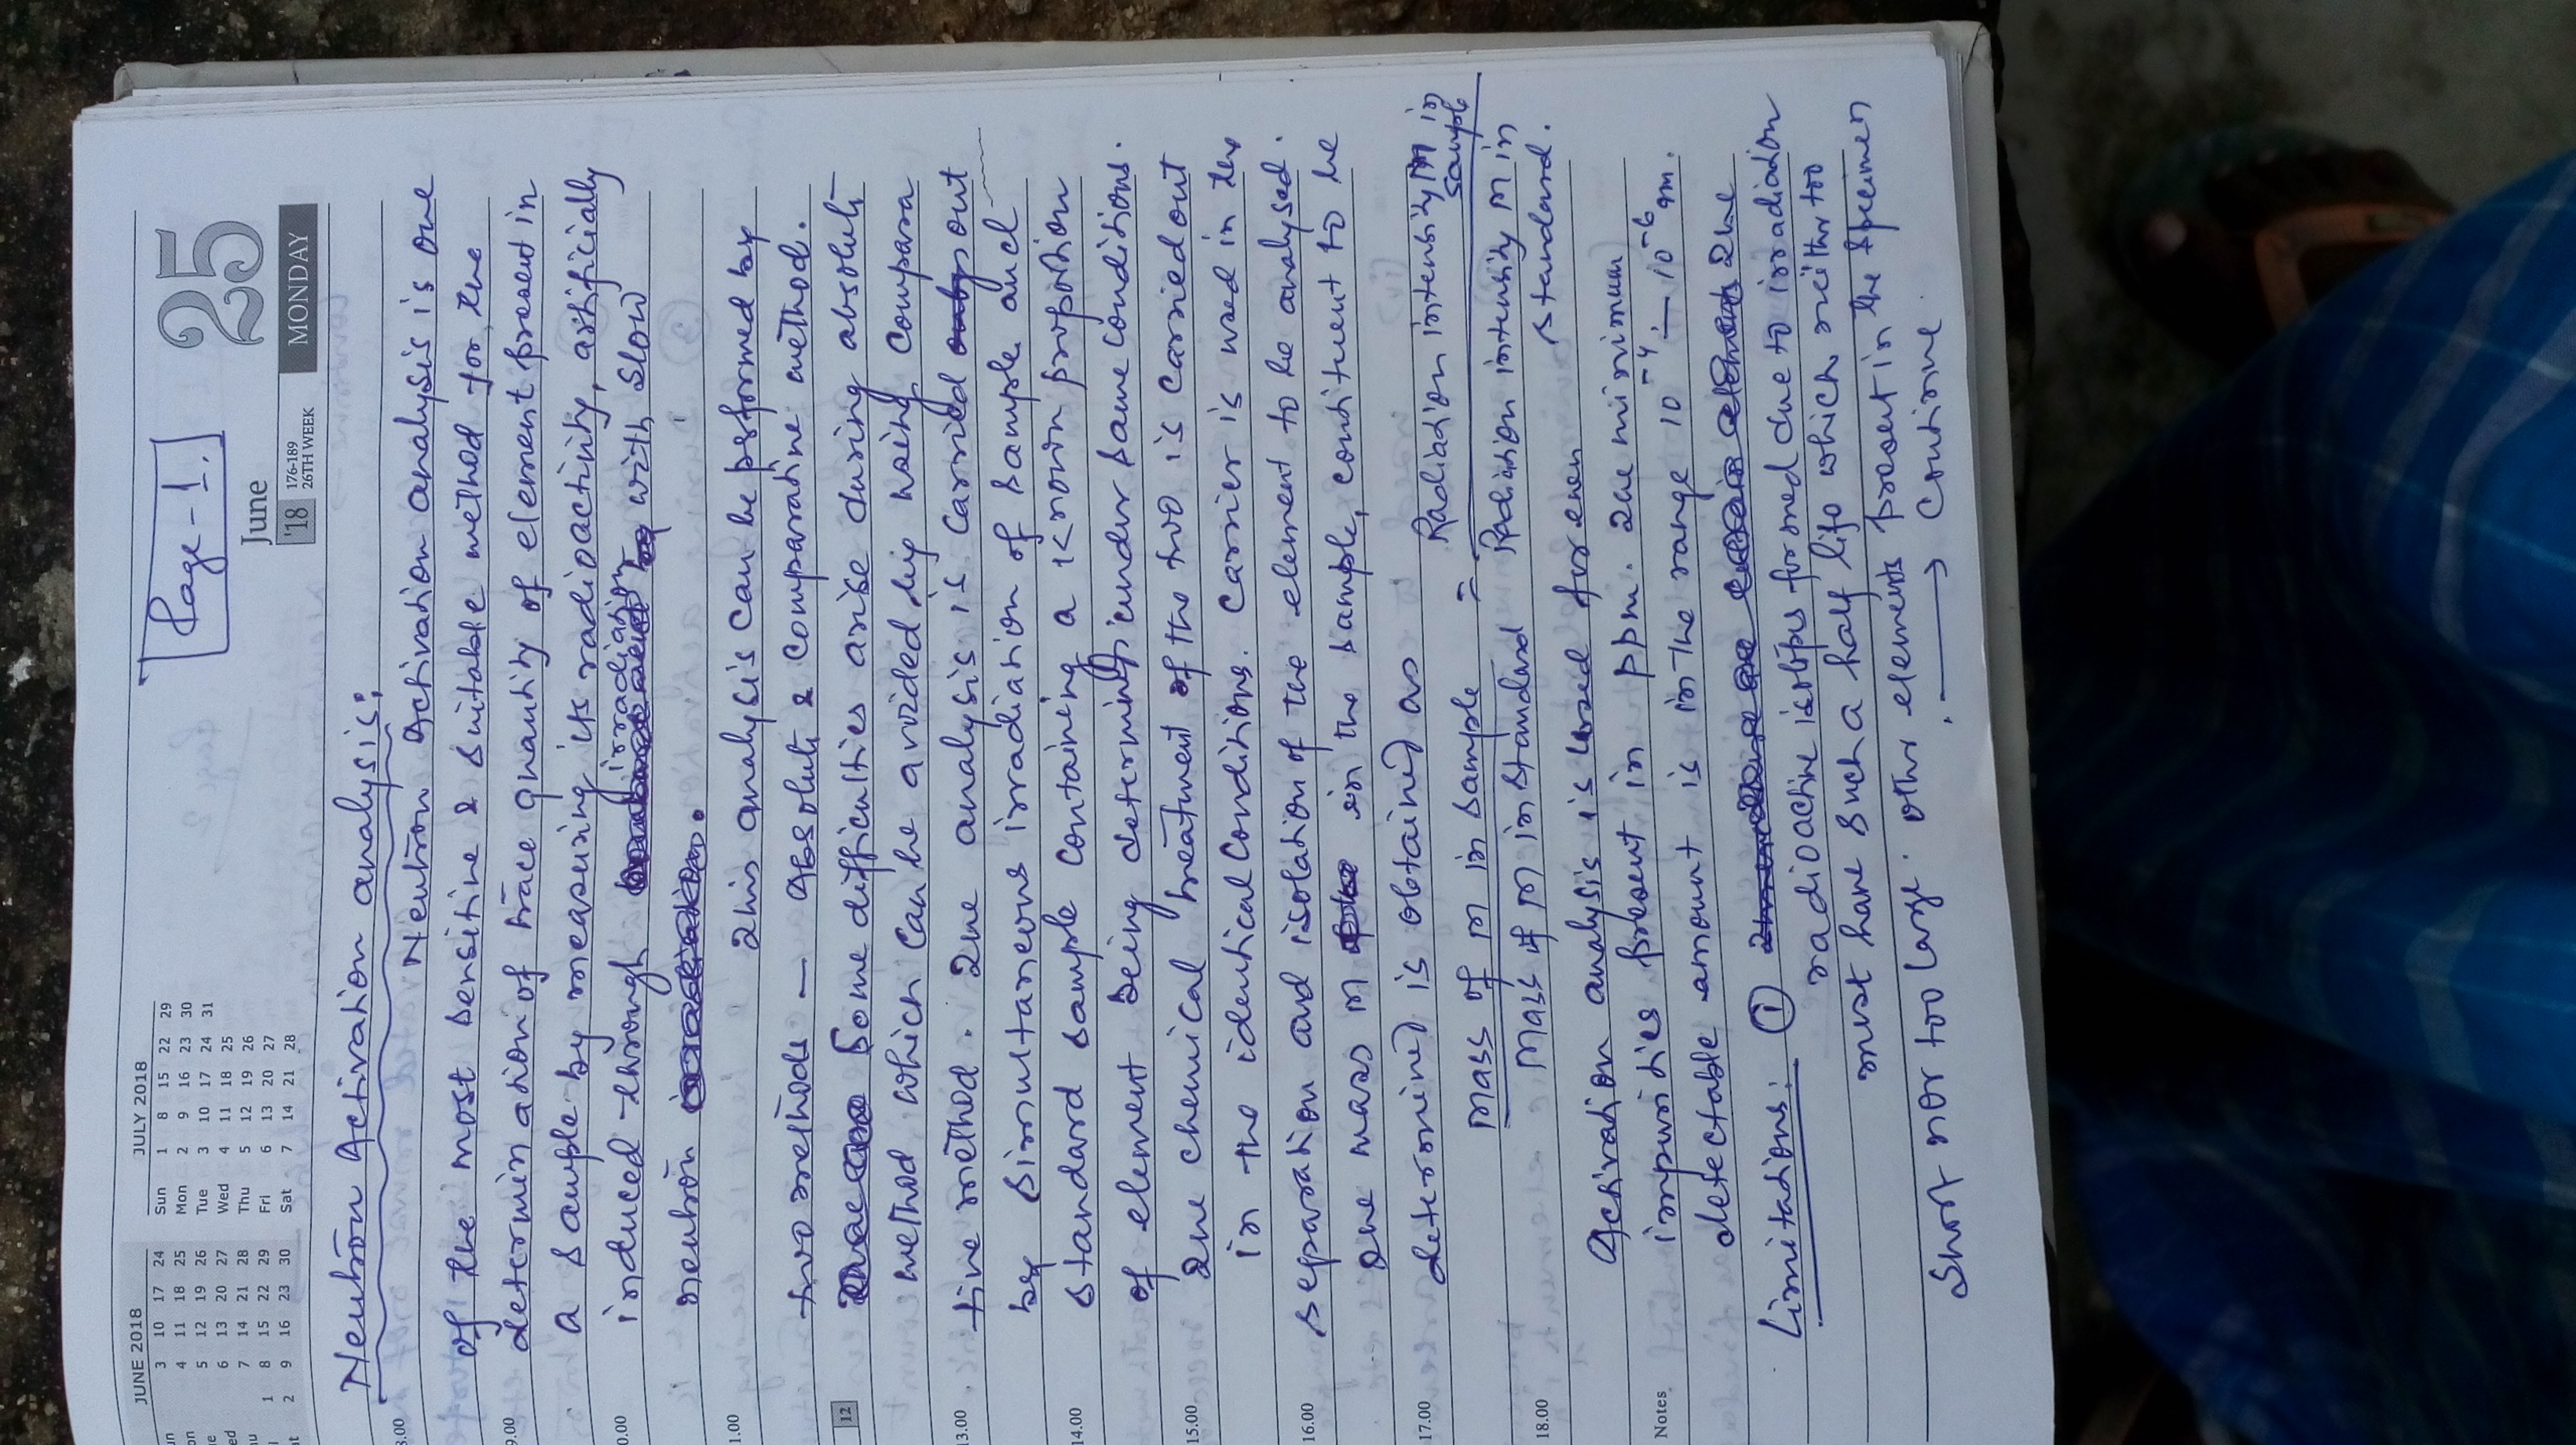 Page-1.
June
25
'18
176-189
26TH WEEK
MONDAY
JUNE 2018
3 10 17 24
4 11 18 25
5 12 19 26
6 13 20 27
7 14 21 28
1 8 15 22 29
2 9 16 23 30
JULY 2018
Sun 1 8 15 22 29
Mon 2 9 16 23 30
Tue 3 10 17 24 31
Wed 4 11 18 25
Thu 5 12 19 26
Fri 6 13 20 27
Sat 7 14 21 28
Neutron Activation analysis:
Neutron Activation analysis is one
of the most sensitive & suitable method for the
determination of trace quantity of element present in
a sample by measuring its radioactivity, artificially
induced through irradiation with slow
neutron.
This analysis can be performed by
two methods — absolute & comparative method.
Some difficulties arise during absolute
method which can be avoided by using compara
tive method. The analysis is carried out
by simultaneous irradiation of sample and
standard sample containing a known proportion
of element being determined under same conditions.
The chemical treatment of the two is carried out
in the identical conditions. Carrier is used in the
separation and isolation of the element to be analysed.
The mass M in the sample, constituent to be
determined is obtained as
Mass of M in sample / Mass of M in standard = Radiation intensity M in sample / Radiation intensity M in standard.
Activation analysis is used for even
impurities present in ppm. The minimum
detectable amount is in the range 10⁻⁴ – 10⁻⁶ gm.
Limitations: (i)
radioactive isotopes formed due to irradiation
must have such a half life which neither too
short nor too large. other elements present in the specimen
→ Continue
9.00
13.00
14.00
15.00
16.00
17.00
18.00
12
Notes